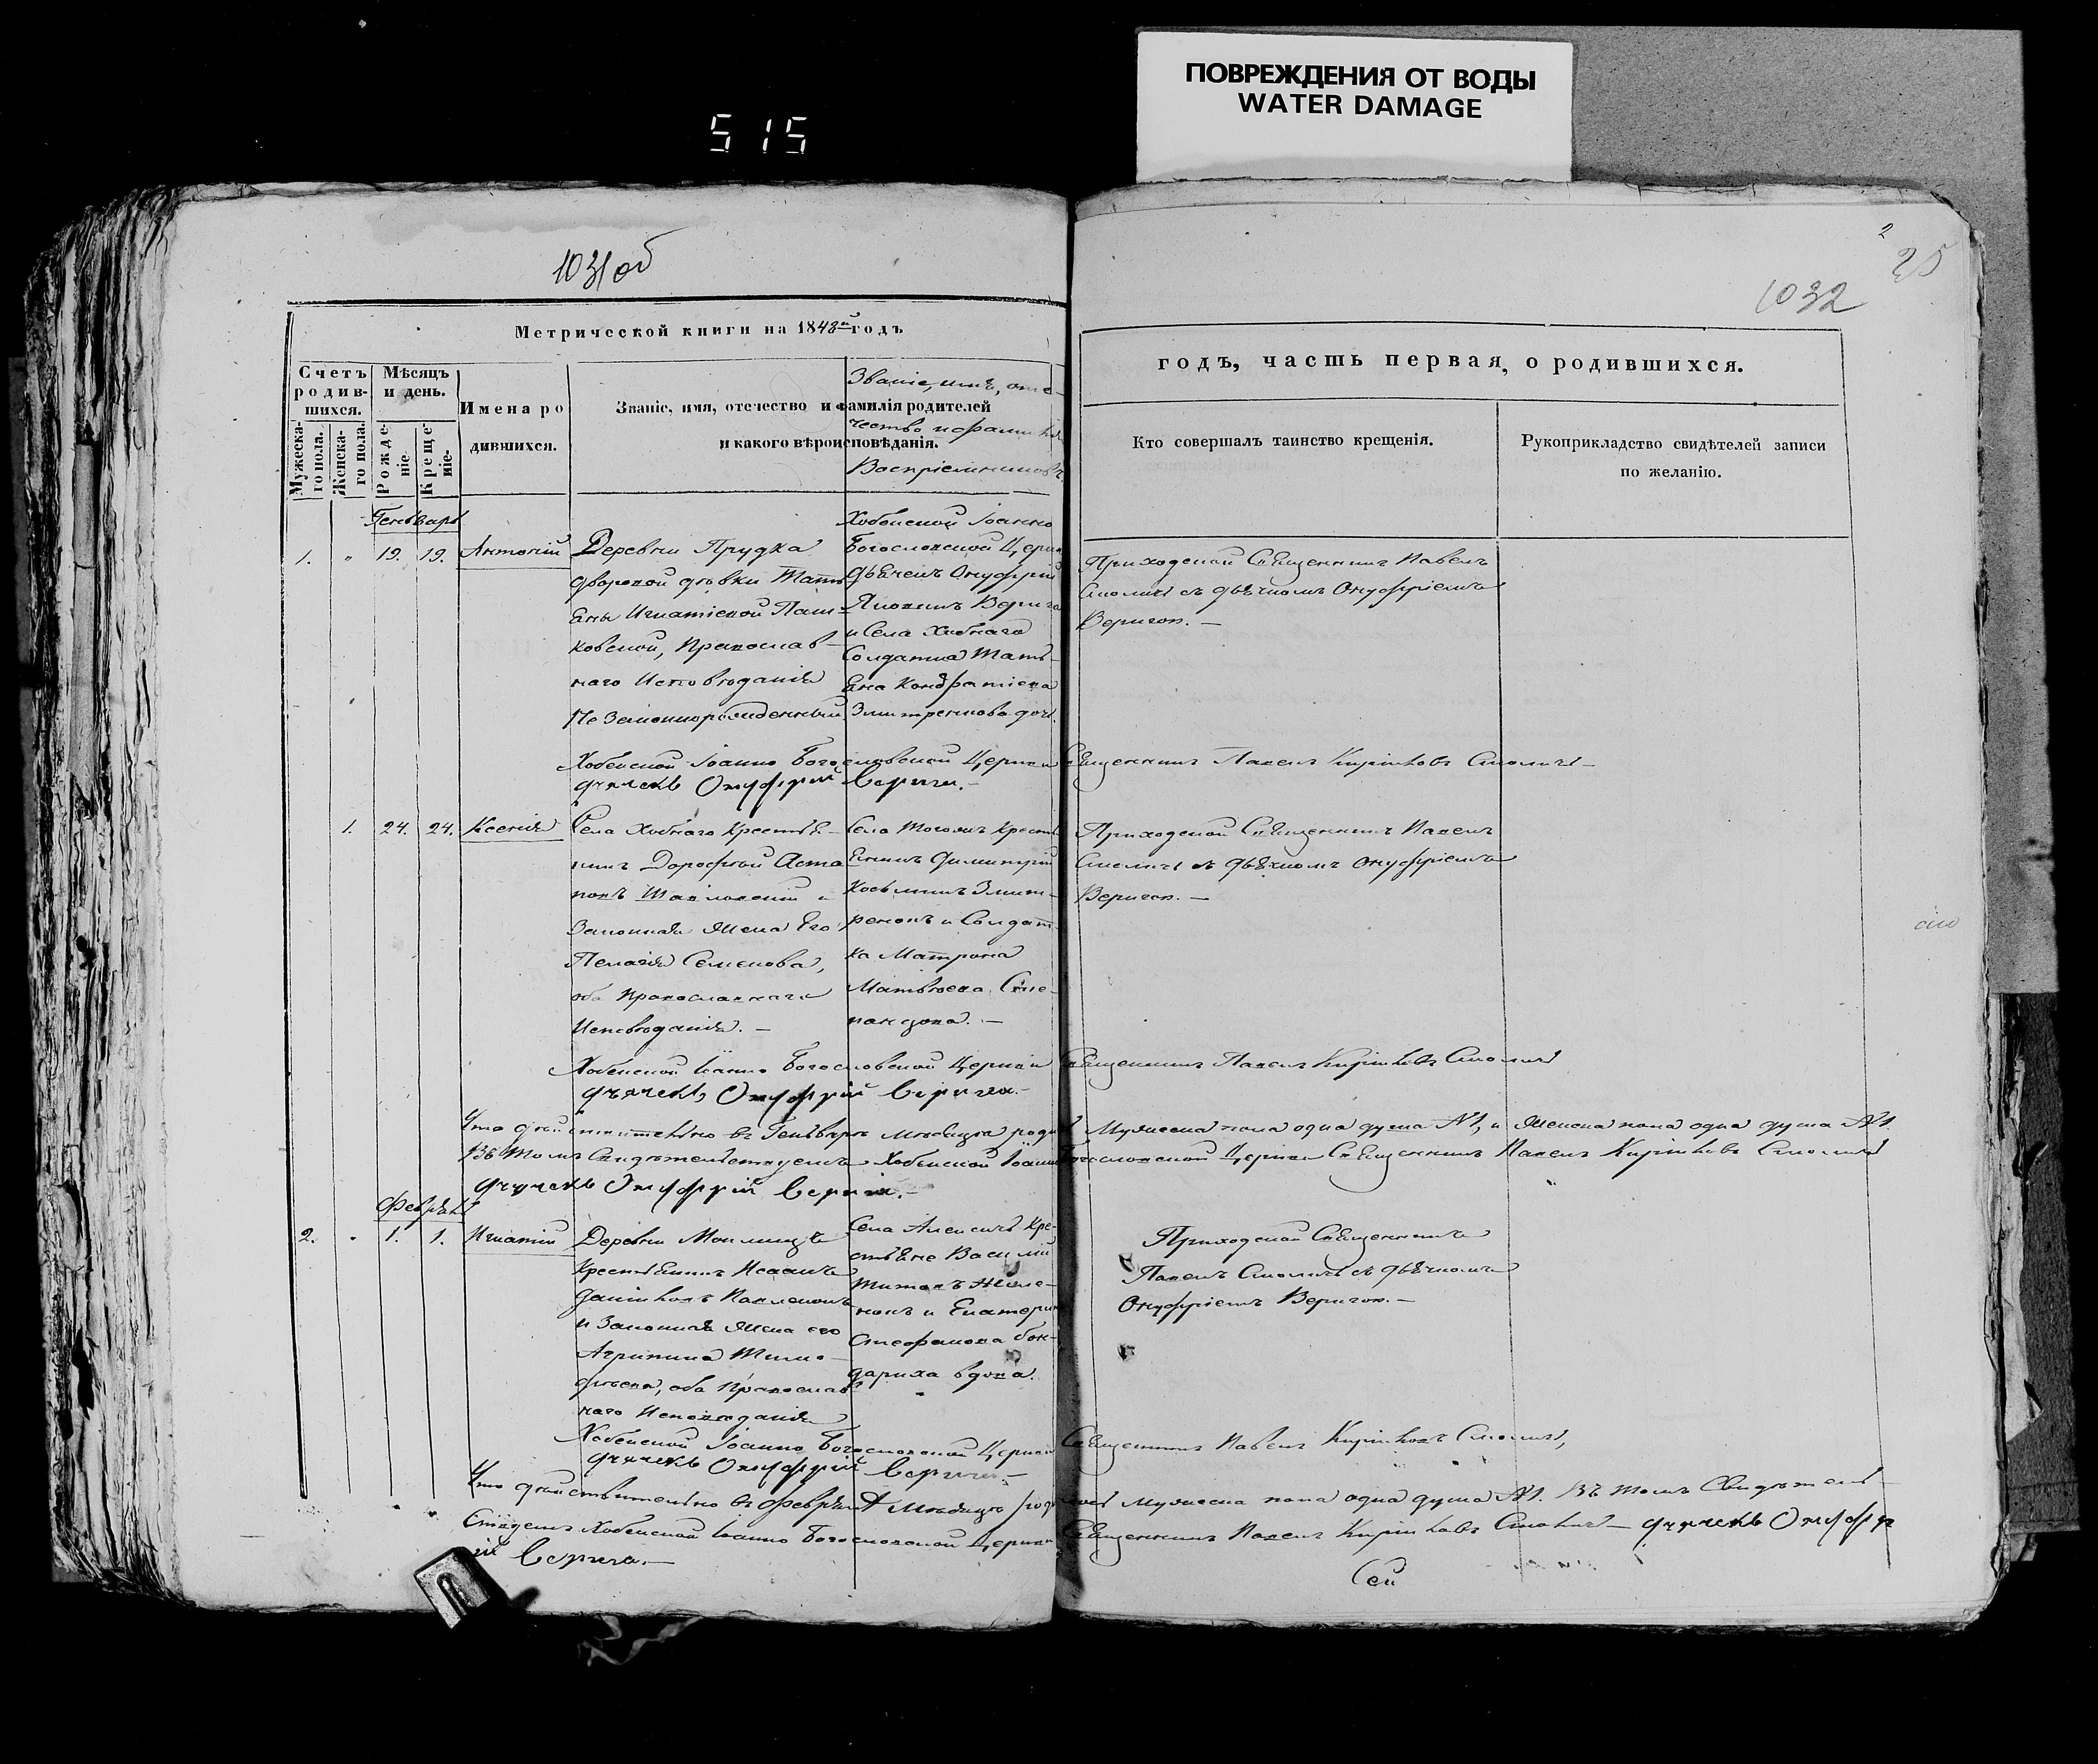 ПОВРЕЖДЕНИЯ ОТ ВОДЫ
WATER DAMAGE
515
1031об
2
25
1032
Метрической книги на 1848й годъ
годъ, часть первая, о родившихся.
Счетъ родив-шихся.
Мужеска-го пола.
Женска-го пола.
Мѣсяцъ и день.
Рожде-ніе.
Креще-ніе.
Имена ро
дившихся.
Званіе, имя, отечество и фамилія родителей
и какого вѣроисповѣданія.
Званіе, имя, оте-
чество и фамилія
Воспріемниковъ
Кто совершалъ таинство крещенія.
Рукоприкладство свидѣтелей записи
по желанію.
Генварь
1. " 19. 19. Антоній
Деревни Прудка
дворовой дѣвки Тать
яны Игнатіевой Паш-
ковской, Православ-
наго Исповѣданія
Незаконнорожденный
Хобенской Іоанно
Богословской Церкви
дьячекъ Онуфрій
Яковлевъ Верига
и Села Хобнаго
Солдатка Тать-
яна Кондратіева
Змитренкова дочь.
Приходской Священникъ Павелъ
Смоличъ съ дьячкомъ Онуфріемъ
Веригою. —
Хобенской Іоанно Богословской Церкви Священникъ Павелъ Кириловъ Смоличъ —
дьячекъ Онуфрій Верига. —
1. 24. 24. Ксенія
Села Хобнаго Крестья-
нинъ Дорофей Аста
повъ и
Законная Жена Его
Пелагія Семенова,
оба Православнаго
Исповѣданія. —
Села Крестья
янинъ Димитрій
Косьминъ Змит-
ренокъ и Солдат-
ка Матрона
Матвѣева Сте-
панцова. —
Приходской Священникъ Павелъ
Смоличъ съ дьячкомъ Онуфріемъ
Веригою. —
Хобенской Іоанно Богословской Церкви Священникъ Павелъ Кириловъ Смоличъ
дьячекъ Онуфрій Верига. —
Что дѣйствительно въ Генварѣ Мѣсяцѣ Мужеска пола одна душа №1, и Женска пола одна душа №1.
Въ томъ Свидѣтельствуемъ Хобенской Іоанно Богословской Церкви Священникъ Павелъ Кириловъ Смоличъ
дьячекъ Онуфрій Верига. —
Февраль
2. " 1. 1. Игнатій
Деревни
Крестьянинъ Исаакъ
Даніиловъ
и Законная Жена его
Агрипина Тимо-
фѣева, оба Православ
наго Исповѣданія
Села Алексичъ Кре-
стьяне Василій
Титовъ
и Екатерина
Стефанова Бон-
дариха вдова.
Приходской Священникъ
Павелъ Смоличъ съ дьячкомъ
Онуфріемъ Веригою. —
Хобенской Іоанно Богословской Церкви Священникъ Павелъ Кириловъ Смоличъ,
дьячекъ Онуфрій Верига —
Что дѣйствительно въ Февралѣ Мѣсяцѣ Мужеска пола одна душа №1. Въ томъ Свидѣтель-
ствуемъ Хобенской Іоанно Богословской Церкви Священникъ Павелъ Кириловъ Смоличъ — дьячекъ Онуфр
ій Верига. —